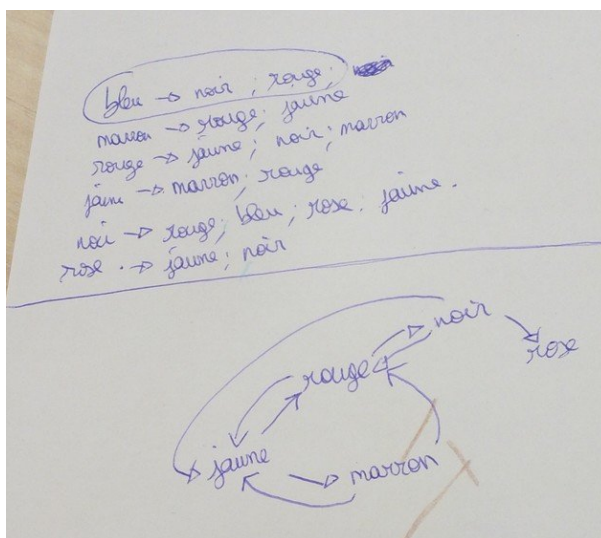 bleu → noir ; rouge ;
marron → rouge ; jaune
rouge → jaune ; noir ; marron
jaune → marron ; rouge
noir → rouge ; bleu ; rose ; jaune.
rose → jaune ; noir
noir
rose
rouge
jaune
marron